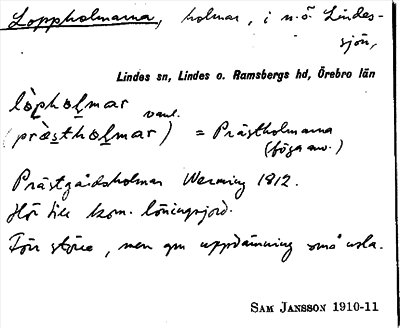 Loppholmarna, holmar, i n.ö. Lindes-
sjön,
Lindes sn, Lindes o. Ramsbergs hd, Örebro län
lòpholmar
vanl.
(pròstholmar) = Prästholmarna
(föga anv.)
Prästgårdsholmar Werming 1812.
Hör till kom. löningsjord.
Förr större, men gm uppdämning små usla.
SAM JANSSON 1910-11